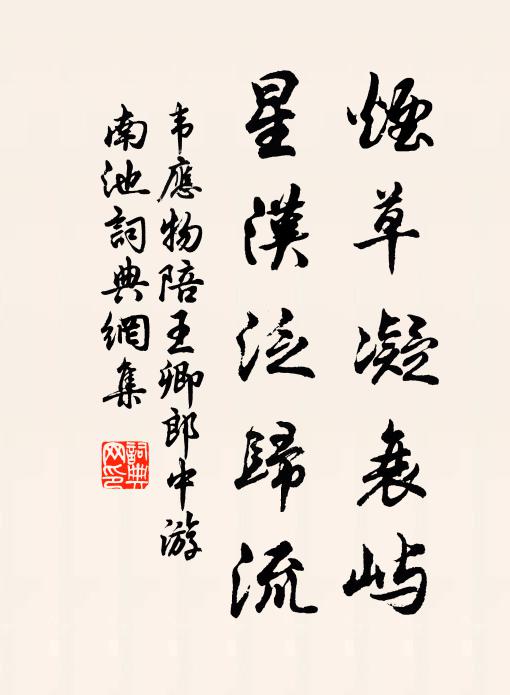 煙草凝衰屿
星漢泛歸流
韦應物陪王卿郎中游
南池詞典網集
詞典网印